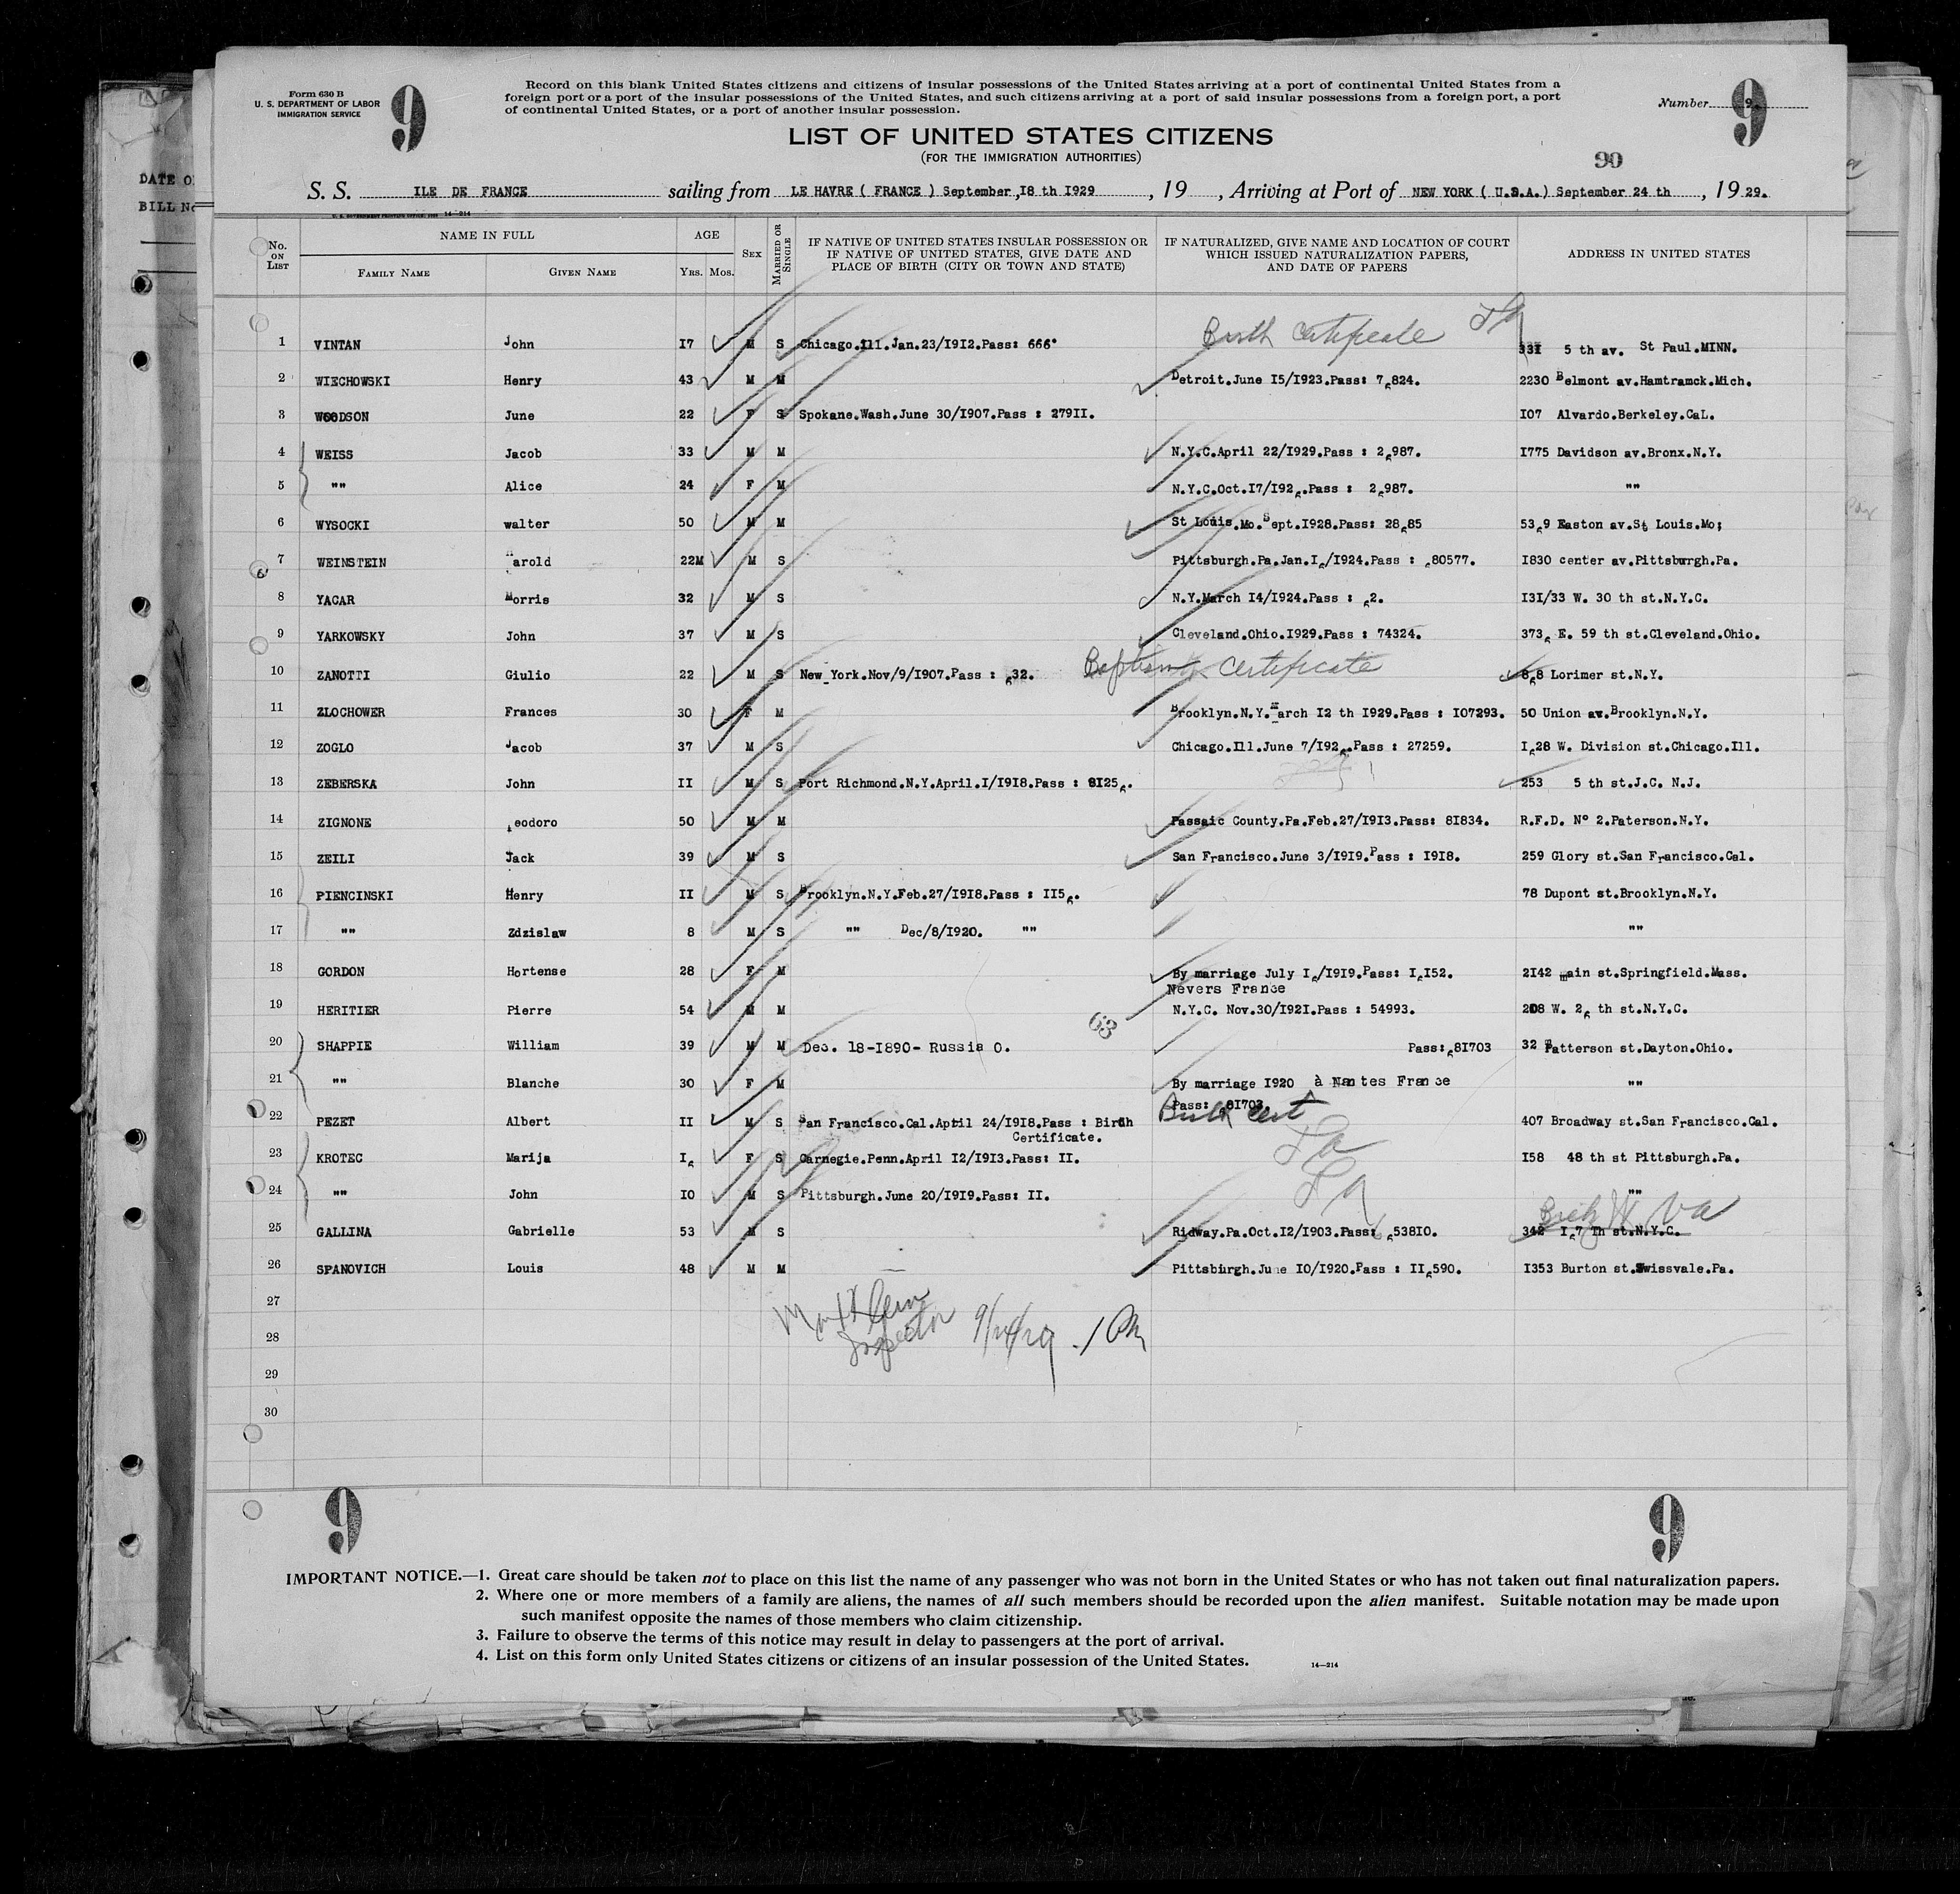 DATE O
BILL No
Form 630 B
U. S. DEPARTMENT OF LABOR
IMMIGRATION SERVICE
9
Record on this blank United States citizens and citizens of insular possessions of the United States arriving at a port of continental United States from a
foreign port or a port of the insular possessions of the United States, and such citizens arriving at a port of said insular possessions from a foreign port, a port
of continental United States, or a port of another insular possession.
Number 9
9
LIST OF UNITED STATES CITIZENS
(FOR THE IMMIGRATION AUTHORITIES)
90
S. S. ILE DE FRANCE sailing from LE HAVRE ( FRANCE ) September,I8 th I929 , 19 , Arriving at Port of NEW YORK ( U.S.A.) September 24 th , 19 29.
U. S. GOVERNMENT PRINTING OFFICE: 14—214
No. on List NAME IN FULL AGE Sex Married or Single IF NATIVE OF UNITED STATES INSULAR POSSESSION OR IF NATIVE OF UNITED STATES, GIVE DATE AND PLACE OF BIRTH (CITY OR TOWN AND STATE) IF NATURALIZED, GIVE NAME AND LOCATION OF COURT WHICH ISSUED NATURALIZATION PAPERS, AND DATE OF PAPERS ADDRESS IN UNITED STATES
Family Name Given Name Yrs. Mos.
1 VINTAN John I7 M S Chicago.Ill.Jan.23/I9I2.Pass: 666 Birth Certificate 33I 5 th av. St Paul.MINN.
2 WIECHOWSKI Henry 43 M M Detroit.June I5/I923.Pass: 76824. 2230 Belmont av.Hamtramck.Mich.
3 WOODSON June 22 F S Spokane.Wash.June 30/I907.Pass : 279II. I07 Alvardo.Berkeley.CaL.
4 WEISS Jacob 33 M M N.Y.C.April 22/I929.Pass : 26987. I775 Davidson av.Bronx.N.Y.
5 "" Alice 24 F M N.Y.C.Oct.I7/I926.Pass : 26987. ""
6 WYSOCKI walter 50 M M St Louis.Mo.Sept.I928.Pass: 28685 5369 Easton av.St Louis.Mo;
7 WEINSTEIN Harold 22M M S Pittsburgh.Pa.Jan.I6/I924.Pass : 680577. I830 center av.Pittsburgh.Pa.
8 YACAR Morris 32 M S N.Y.March I4/I924.Pass : 62. I3I/33 W. 30 th st.N.Y.C.
9 YARKOWSKY John 37 M S Cleveland.Ohio.I929.Pass : 74324. 3736 E. 59 th st.Cleveland.Ohio.
10 ZANOTTI Giulio 22 M S New York.Nov/9/I907.Pass : 632. Baptism Certificate 868 Lorimer st.N.Y.
11 ZLOCHOWER Frances 30 F M Brooklyn.N.Y.March I2 th I929.Pass : I07293. 50 Union av.Brooklyn.N.Y.
12 ZOGLO Jacob 37 M S Chicago.Ill.June 7/I926.Pass : 27259. I628 W. Division st.Chicago.Ill.
13 ZEBERSKA John II M S Port Richmond.N.Y.April.I/I9I8.Pass : 8I256. 253 5 th st.J.C. N.J.
14 ZIGNONE Teodoro 50 M M Passaic County.Pa.Feb.27/I9I3.Pass: 8I834. R.F.D. N° 2.Paterson.N.Y.
15 ZEILI Jack 39 M S San Francisco.June 3/I9I9.Pass : I9I8. 259 Glory st.San Francisco.Cal.
16 PIENCINSKI Henry II M S Brooklyn.N.Y.Feb.27/I9I8.Pass : II56. 78 Dupont st.Brooklyn.N.Y.
17 "" Zdzislaw 8 M S "" Dec/8/I920. "" ""
18 GORDON Hortense 28 F M By marriage July I6/I9I9.Pass: I6I52. 2I42 main st.Springfield.Mass.
Nevers France
19 HERITIER Pierre 54 M M N.Y.C. Nov.30/I92I.Pass : 54993. 208 W. 26 th st.N.Y.C.
63
20 SHAPPIE William 39 M M Dec. 18-1890- Russia O. Pass:68I703 32 Patterson st.Dayton.Ohio.
21 "" Blanche 30 F M By marriage I920 à Nantes France ""
Pass: 68I703.
22 PEZET Albert II M S San Francisco.Cal.April 24/I9I8.Pass : Birth Birth Cert 407 Broadway st.San Francisco.Cal.
Certificate.
23 KROTEC Marija I6 F S Carnegie.Penn.April I2/I9I3.Pass: II. I58 48 th st Pittsburgh.Pa.
24 "" John I0 M S Pittsburgh.June 20/I9I9.Pass: II. ""
25 GALLINA Gabrielle 53 M S Ridway.Pa.Oct.I2/I903.Pass: 6538I0. 342 I67 Th st.N.Y.C.
26 SPANOVICH Louis 48 M M Pittsburgh.June I0/I920.Pass : II6590. I353 Burton st.Swissvale.Pa.
27
Inspector 9/24/29
28
29
30
9
9
IMPORTANT NOTICE.—1. Great care should be taken not to place on this list the name of any passenger who was not born in the United States or who has not taken out final naturalization papers.
2. Where one or more members of a family are aliens, the names of all such members should be recorded upon the alien manifest. Suitable notation may be made upon
such manifest opposite the names of those members who claim citizenship.
3. Failure to observe the terms of this notice may result in delay to passengers at the port of arrival.
4. List on this form only United States citizens or citizens of an insular possession of the United States.
14—214